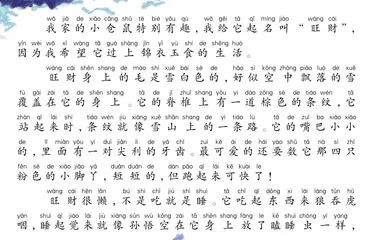 wǒ jiā de xiǎo cāng shǔ tè bié yǒu qù wǒ gěi tā qǐ míng jiào wàng cái
我家的小仓鼠特别有趣，我给它起名叫“旺财”，
yīn wèi wǒ xī wàng tā guò shàng jǐn yī yù shí de shēng huó
因为我希望它过上锦衣玉食的生活。
wàng cái shēn shàng de máo shì xuě bái sè de hǎo sì kōng zhōng piāo luò de xuě
旺财身上的毛是雪白色的，好似空中飘落的雪
fù gài zài tā de shēn shàng tā de jǐ zhuī shang yǒu yí dào zōng sè de tiáo wén tā
覆盖在它的身上。它的脊椎上有一道棕色的条纹，它
zhàn qǐ lái shí tiáo wén jiù xiàng xuě shān shàng de yì tiáo lù tā de zuǐ ba xiǎo xiǎo
站起来时，条纹就像雪山上的一条路。它的嘴巴小小
de lǐ miàn yǒu yí duì jiān lì de yá chǐ zuì kě ài de hái yào shǔ tā nà sì zhī
的，里面有一对尖利的牙齿。最可爱的还要数它那四只
fěn sè de xiǎo jiǎo yā duǎn duǎn de dàn pǎo qǐ lái kě kuài le
粉色的小脚丫，短短的，但跑起来可快了！
wàng cái hěn lǎn bú shì chī jiù shì shuì tā chī qǐ dōng xi lái láng tūn hǔ
旺财很懒，不是吃就是睡。它吃起东西来狼吞虎
yàn shuì qǐ jiào lái jiù xiàng sūn wù kōng zài tā shēn shàng fàng le kē shuì chóng yí yàng
咽，睡起觉来就像孙悟空在它身上放了瞌睡虫一样，